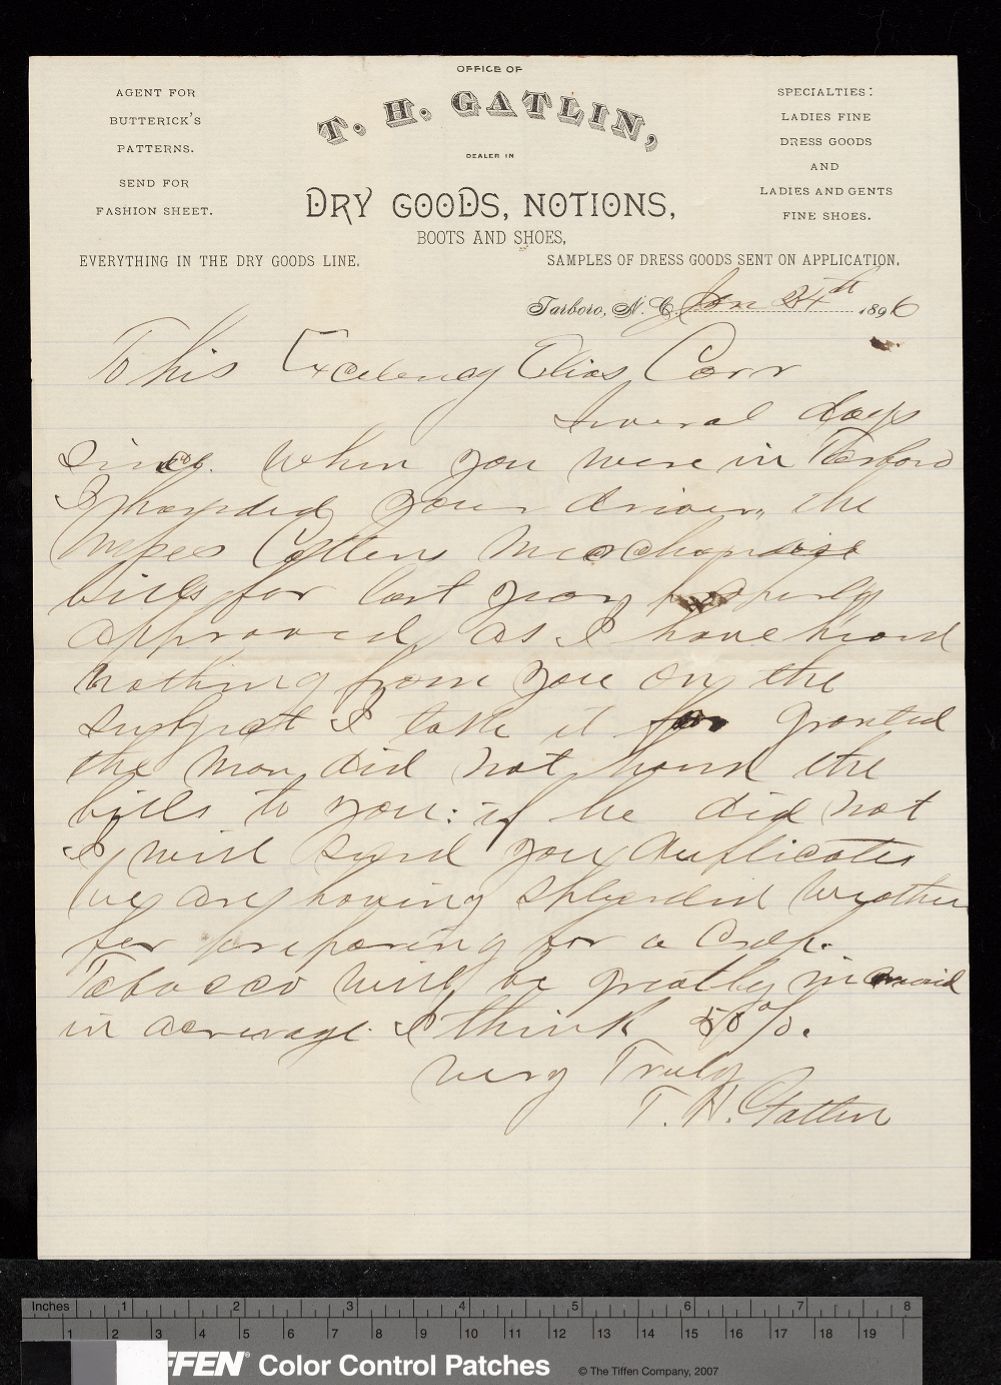 OFFICE OF
T. H. GATLIN,
DEALER IN
DRY GOODS, NOTIONS,
BOOTS AND SHOES,
AGENT FOR
BUTTERICK'S
PATTERNS.
SEND FOR
FASHION SHEET.
SPECIALTIES:
LADIES FINE
DRESS GOODS
AND
LADIES AND GENTS
FINE SHOES.
EVERYTHING IN THE DRY GOODS LINE.
SAMPLES OF DRESS GOODS SENT ON APPLICATION.
Tarboro, N. C. Jan 24th 1896
To his Excelency Elias Carr
Several days
since. When you were in Tarboro
I handed your driver, the
Cottens Merchandise
bills for last year properly
approved, as I have heard
nothing from you on the
subject I take it for granted
the man did not hand the
bills to you: if he did not
I will send you duplicates
we are having splendid weather
for preparing for a crop.
Tobacco will be greatly
in acreage. I think 50%.
Very Truly
T. H. Gatlin
Inches 1 2 3 4 5 6 7 8
1 2 3 4 5 6 7 8 9 10 11 12 13 14 15 16 17 18 19
FFEN® Color Control Patches © The Tiffen Company, 2007